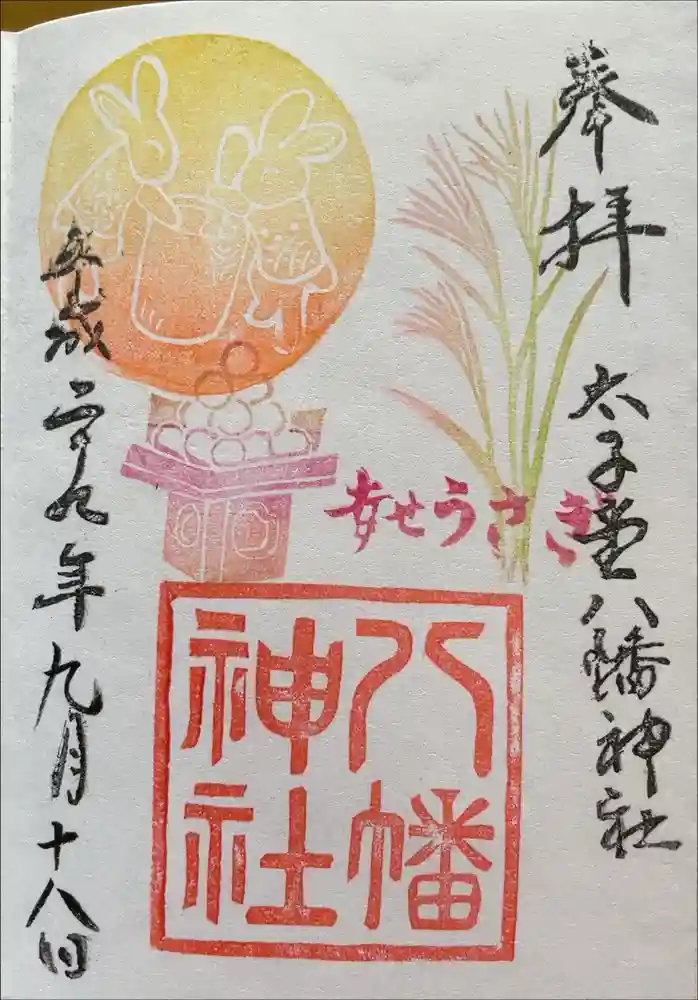 奉拝
太子堂八幡神社
幸せうさぎ
八幡
神社
平成二十九年九月十八日